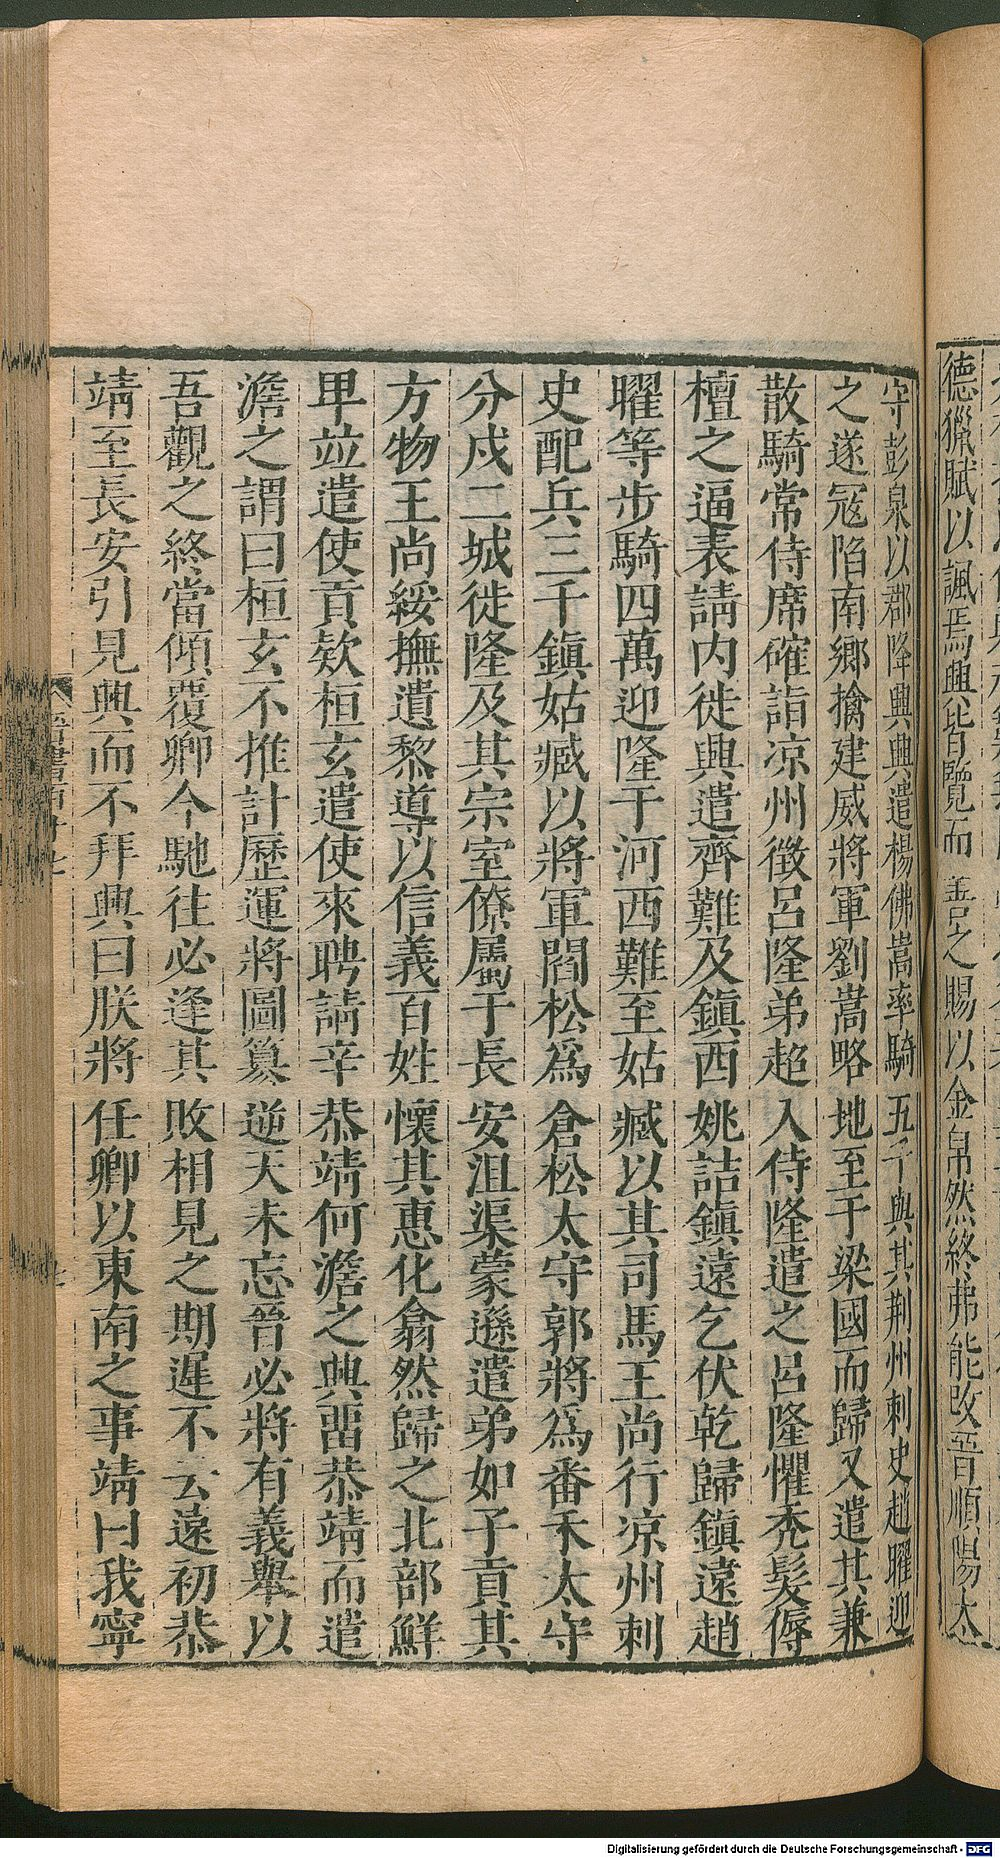 德獵賦以諷焉興皆覽而善之賜以金帛然終弗能改晉順陽太
守彭泉以郡降興興遣楊佛嵩率騎五千與其荆州刺史趙曜迎
之遂寇陷南鄉擒建威將軍劉嵩略地至于梁國而歸又遣其兼
散騎常侍席確詣凉州徵呂隆弟超入侍隆遣之呂隆懼禿髮傉
檀之逼表請內徙興遣齊難及鎮西姚詰鎮遠乞伏乾歸鎮遠趙
曜等步騎四萬迎隆于河西難至姑臧以其司馬王尚行凉州刺
史配兵三千鎮姑臧以將軍閻松爲倉松太守郭將爲番禾太守
分戍二城徙隆及其宗室僚屬于長安沮渠蒙遜遣弟如子貢其
方物王尚綏撫遺黎導以信義百姓懷其惠化翕然歸之北部鮮
卑竝遣使貢欵桓玄遣使來聘請辛恭靖何澹之興畱恭靖而遣
澹之謂曰桓玄不推計歷運將圖簒逆天未忘晉必將有義舉以
吾觀之終當傾覆卿今馳往必逢其敗相見之期遲不云遠初恭
靖至長安引見興而不拜興曰朕將任卿以東南之事靖曰我寧
晉書百十七
Digitalisierung gefördert durch die Deutsche Forschungsgemeinschaft - DFG